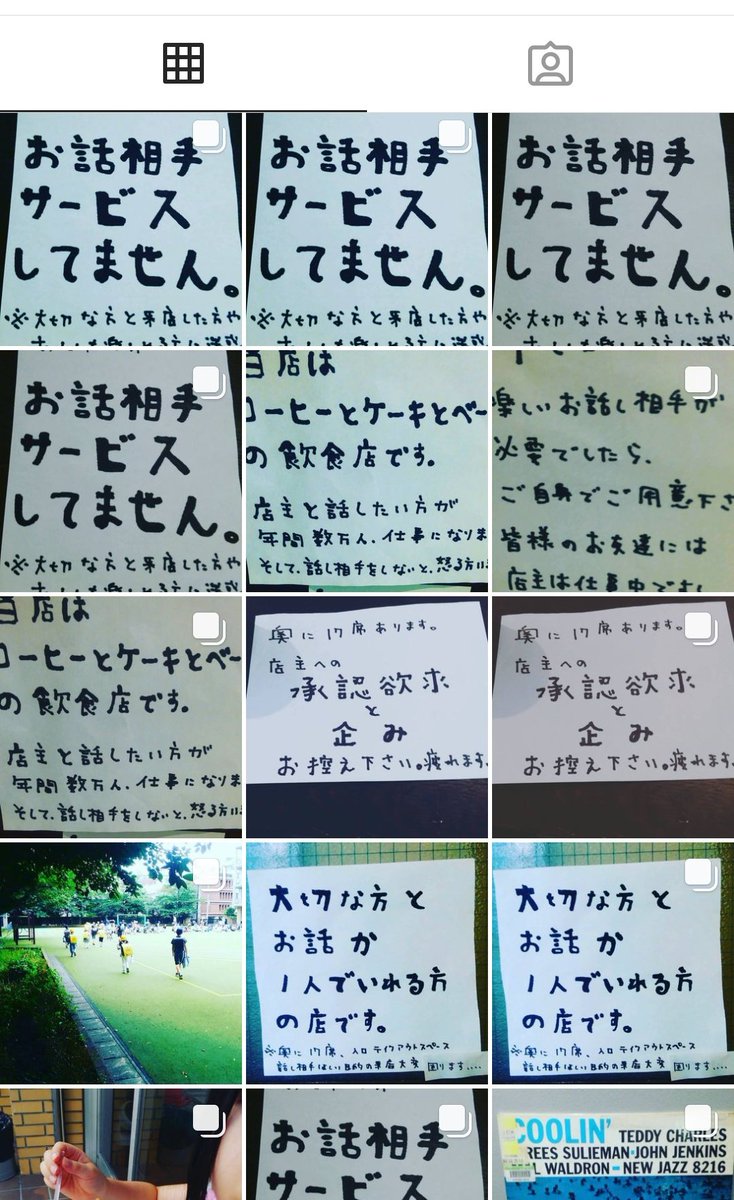 お話相手
サービス
してません。
※大切な方と来店した方や
お話相手
サービス
してません。
※大切な方と来店した方や
お話相手
サービス
してません。
※大切な方と来店した方や
お話相手
サービス
してません。
※大切な方と来店した方や
当店は
コーヒーとケーキとベー
の飲食店です。
店主と話したい方が
年間数万人、仕事になりま
そして、話し相手をしないと、怒る方に
楽しいお話し相手が
必要でしたら、
ご自身でご用意下さ
皆様のお友達には
店主は仕事中です
当店は
コーヒーとケーキとベー
の飲食店です。
店主と話したい方が
年間数万人、仕事になりま
そして、話し相手をしないと、怒る方に
奥に17席あります。
店主への
承認欲求
と
企み
お控え下さい。疲れます
奥に17席あります。
店主への
承認欲求
と
企み
お控え下さい。疲れます
大切な方と
お話か
1人でいれる方
の店です。
※奥に17席、入口テイクアウトスペース
話し相手ほしい目的の来店大変困ります....
大切な方と
お話か
1人でいれる方
の店です。
※奥に17席、入口テイクアウトスペース
話し相手ほしい目的の来店大変困ります....
お話相手
サービス
COOLIN' TEDDY CHARLES
REES SULIEMAN·JOHN JENKINS
L WALDRON–NEW JAZZ 8216